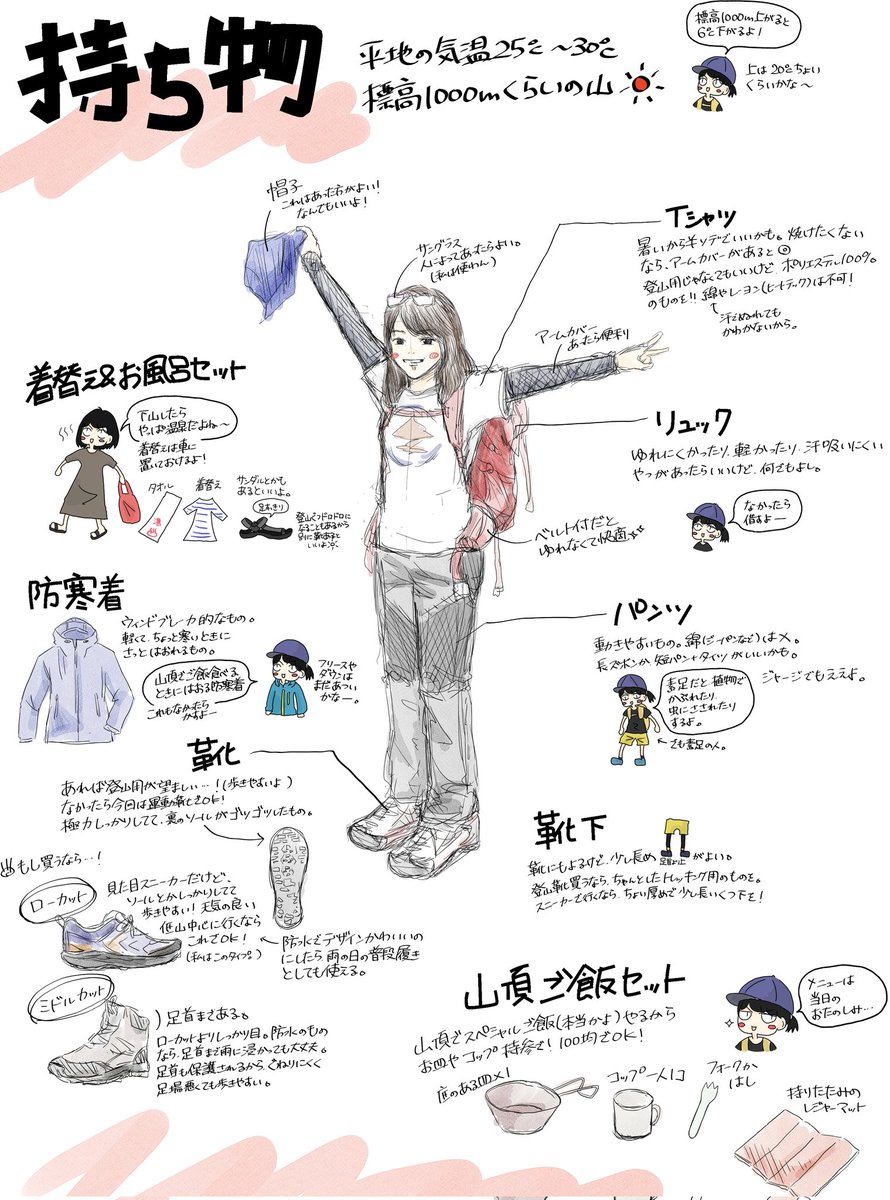 持ち物
平地の気温25℃〜30℃
標高1000mくらいの山
標高1000m上がると
6℃下がるよ!
上は20℃ちょい
くらいかな〜
帽子
これはあった方がよい!
なんでもいいよ!
サングラス
人によってあったらよい。
(私は使わん)
Tシャツ
暑いから半ソデでいいかも。焼けたくない
なら、アームカバーがあると◎
登山用じゃなくてもいいけど、ポリエステル100%
のものを!! 綿やレーヨン(ヒートテック)は不可!
汗でぬれても
かわかないから。
アームカバー
あったら便利
着替え&お風呂セット
下山したら
やっぱ温泉だよね〜
着替えは車に
置いておけるよ!
タオル
着替え
サンダルとかも
あるといいよ。
登山でドロドロに
なることもあるから
別に靴あると
いいよ
リュック
ゆれにくかったり、軽かったり、汗吸いにくい
やつがあったらいいけど、何でもよし。
なかったら
借すよー
ベルト付だと
ゆれなくて快適
防寒着
ウィンドブレーカ的なもの。
軽くて、ちょっと寒いときに
さっとはおれるもの。
山頂でご飯食べる
ときにはおる防寒着
これもなかったら
かすよー
フリースや
ダウンは
まだあつい
かなー。
パンツ
動きやすいもの。綿(ジーパンなど)は×。
長ズボンか短パン+タイツがいいかも。
ジャージでもええよ。
素足だと植物で
かぶれたり、
虫にさされたり
するよ。
← でも素足の人。
靴
あれば登山用が望ましい…!(歩きやすいよ)
なかったら今回は運動靴でOK!
極力しっかりしてて、裏のソールがゴツゴツしたもの。
もし買うなら…!
ローカット
見た目スニーカーだけど、
ソールとかしっかりしてて
歩きやすい!天気の良い
低山中心に行くなら
これでOK!
(私はこのタイプ)
← 防水でデザインかわいいの
にしたら雨の日の普段履き
としても使える。
ミドルカット
足首まである。
ローカットよりしっかり目。防水のもの
なら、足首まで雨に浸かっても大丈夫。
足首も保護されるから、ぐねりにくく
足場悪くても歩きやすい。
靴下
靴にもよるけど、少し長めがよい。
登山靴買うなら、ちゃんとしたトレッキング用のものを。
スニーカーで行くなら、ちょい厚めで少し長いくつ下を!
山頂ご飯セット
メニューは
当日の
おたのしみ…
山頂でスペシャルご飯(本当かよ)やるから
お皿やコップ持参で!100均でOK!
底のある皿×1
コップ一人1コ
フォークか
はし
折りたたみの
レジャーマット